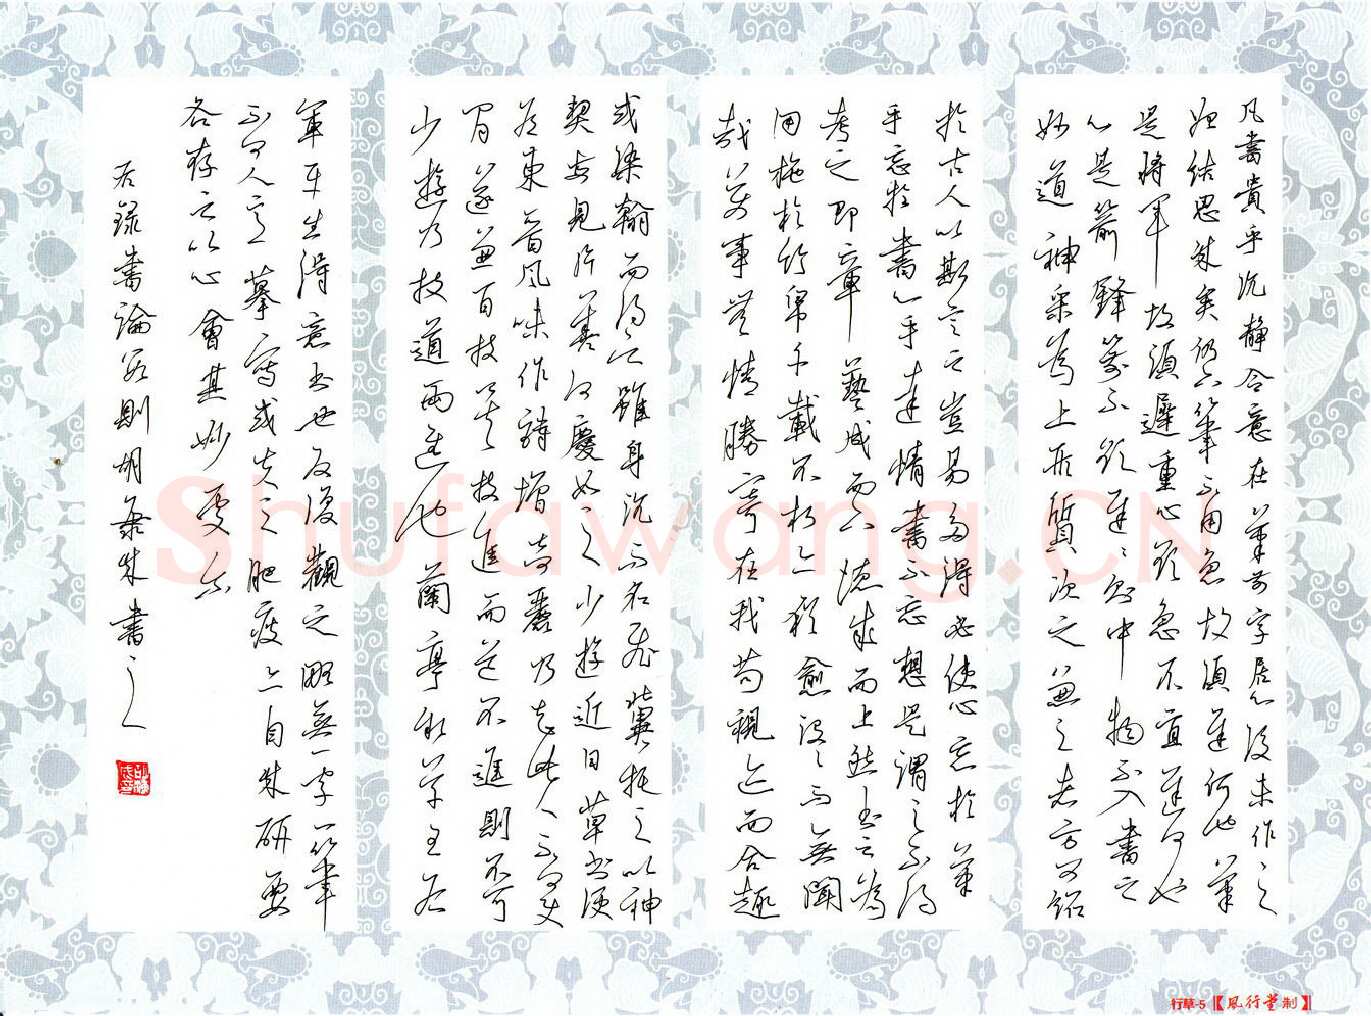 凡書貴乎沉靜令意在筆前字居心後未作之
始結思成矣仍下筆不用急故須遲何也筆
是將軍故須遲重心欲急不宜遲何也
心是箭鋒箭不欲遲遲則中物不入書之
妙道神采為上形質次之兼之者方可紹
於古人以斯言之豈易多得必使心忘於筆
手忘於書心手達情書不忘想是謂求之不得
考之即章藝成而下德成而上然書之為
用施於竹帛千載不朽亦猶愈沒沒而無聞
哉萬事無情勝寄在我苟視迹而合趣
或染翰而得人雖身沉而名飛冀托之以神
契每見片善何慶如之少游近日草書便
有東晉風味作詩增奇麗乃知此人不可使
閑遂兼百技矣技進而道不進則不可
少游乃技道兩進也蘭亭敘草王右
軍平生得意書也反復觀之略無一字一筆
不可人意摹寫或失之肥瘦亦自成妍要
各存之以心會其妙處爾
右錄書論若則 成書之
Shufawang.CN
行草-5【風行堂制】